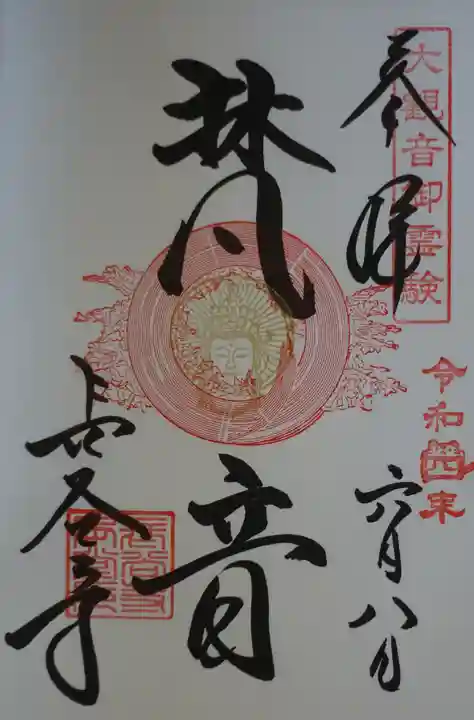 大観音御霊験
奉拝
令和四年
六月八日
梵音
長谷寺